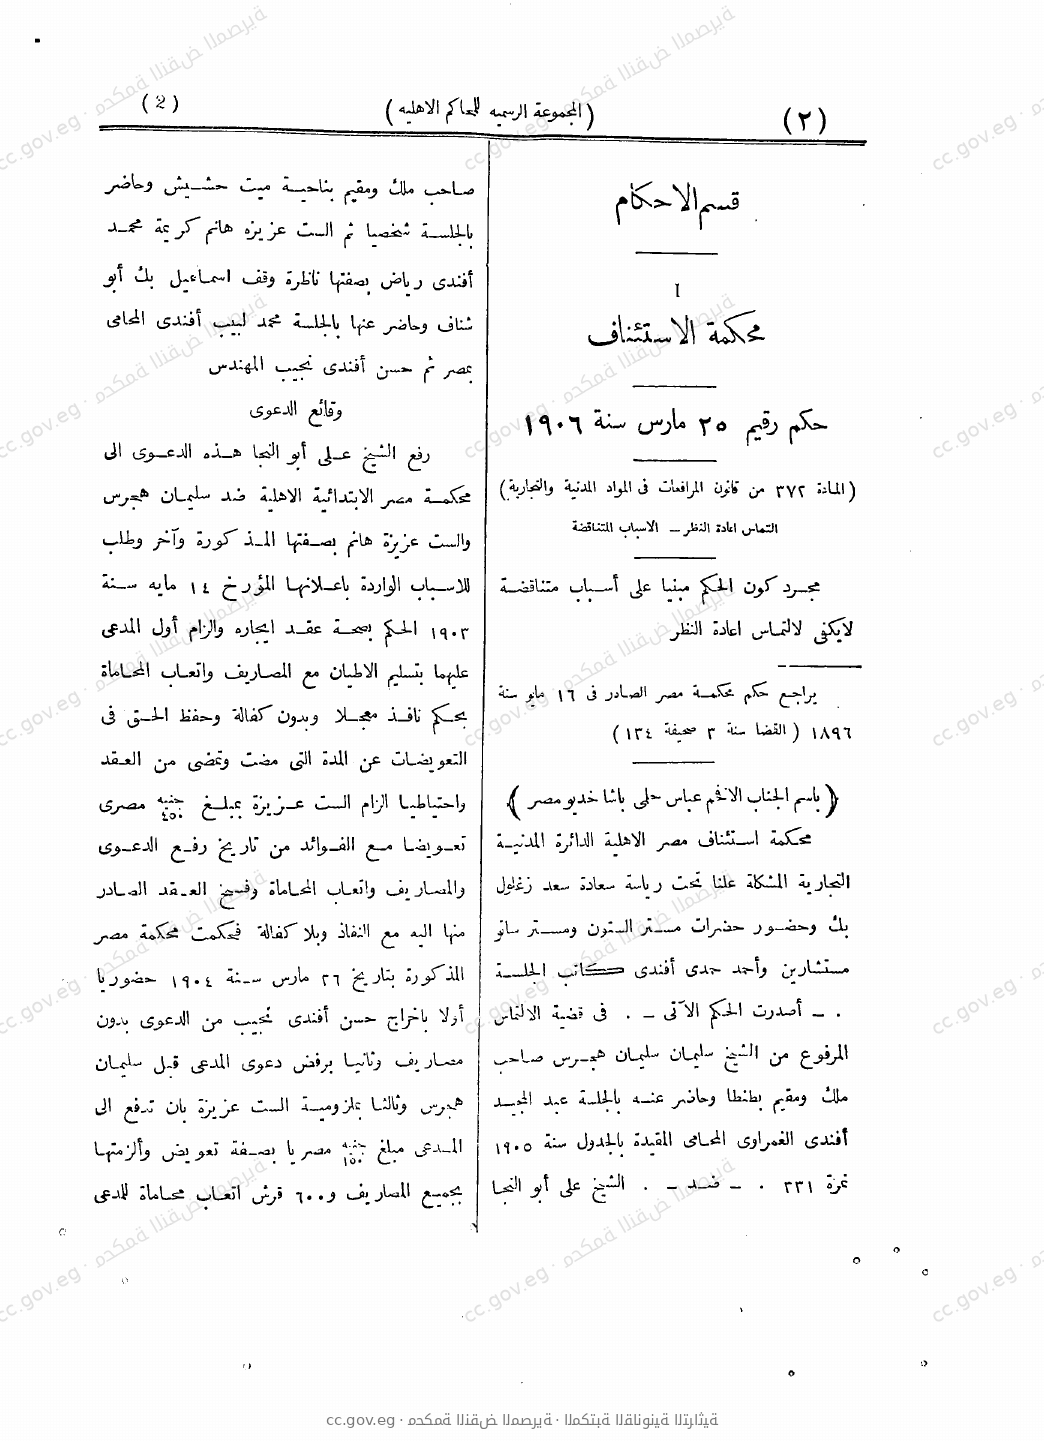 (٢)
(المجموعة الرسميه للمحاكم الاهليه)
(2)
قسم الاحكام
I
محكمة الاستئناف
حكم رقيم ٢٥ مارس سنة ١٩٠٦
(المادة ٣٧٢ من قانون المرافعات فى المواد المدنية والتجارية)
التماس اعادة النظر – الاسباب المتناقضة
مجرد كون الحكم مبنيا على أسباب متناقضة
لايكفى لالتماس اعادة النظر
يراجع حكم محكمة مصر الصادر فى ١٦ مايو سنة
١٨٩٦ (القضا سنة ٣ صحيفة ١٣٤)
(باسم الجناب الافخم عباس حلمى باشا خديو مصر)
محكمة استئناف مصر الاهلية الدائرة المدنية
التجارية المشكلة علنا تحت رياسة سعادة سعد زغلول
بك وحضور حضرات مستر الستون ومستر ساتو
مستشارين وأحمد حمدى أفندى كاتب الجلسة
. – أصدرت الحكم الآتى – . فى قضية الالتماس
المرفوع من الشيخ سليمان سليمان هجرس صاحب
ملك ومقيم بطنطا وحاضر عنه بالجلسة عبد المجيد
أفندى الغمراوى المحامى المقيدة بالجدول سنة ١٩٠٥
نمرة ٢٣١ . – ضد – . الشيخ على أبو النجا
صاحب ملك ومقيم بناحية ميت حشيش وحاضر
بالجلسة شخصيا ثم الست عزيزه هانم كريمة محمد
أفندى رياض بصفتها ناظرة وقف اسماعيل بك أبو
شناف وحاضر عنها بالجلسة محمد لبيب أفندى المحامى
بمصر ثم حسن أفندى نجيب المهندس
وقائع الدعوى
رفع الشيخ على أبو النجا هذه الدعوى الى
محكمة مصر الابتدائية الاهلية ضد سليمان هجرس
والست عزيزة هانم بصفتها المذكورة وآخر وطلب
للاسباب الواردة باعلانها المؤرخ ١٤ مايه سنة
١٩٠٣ الحكم بصحة عقد ايجاره والزام أول المدعى
عليهما بتسليم الاطيان مع المصاريف واتعاب المحاماة
بحكم نافذ معجلا وبدون كفالة وحفظ الحق فى
التعويضات عن المدة التى مضت وتمضى من العقد
واحتياطيا الزام الست عزيزة بمبلغ جنيه ٤٥٠ مصرى
تعويضا مع الفوائد من تاريخ رفع الدعوى
والمصاريف واتعاب المحاماة وفسخ العقد الصادر
منها اليه مع النفاذ وبلا كفالة فحكمت محكمة مصر
المذكورة بتاريخ ٢٦ مارس سنة ١٩٠٤ حضوريا
أولا باخراج حسن أفندى نجيب من الدعوى بدون
مصاريف وثانيا برفض دعوى المدعى قبل سليمان
هجرس وثالثا بملزومية الست عزيزة بان تدفع الى
المدعى مبلغ جنيه ١٥٠ مصريا بصفة تعويض وألزمتها
بجميع المصاريف و٦٠٠ قرش اتعاب محاماة للمدعى
cc.gov.eg · محكمة النقض المصرية · المكتبة القانونية التراثية